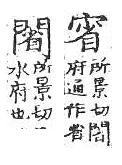 所景切閣
府通作省
所景切
水府也